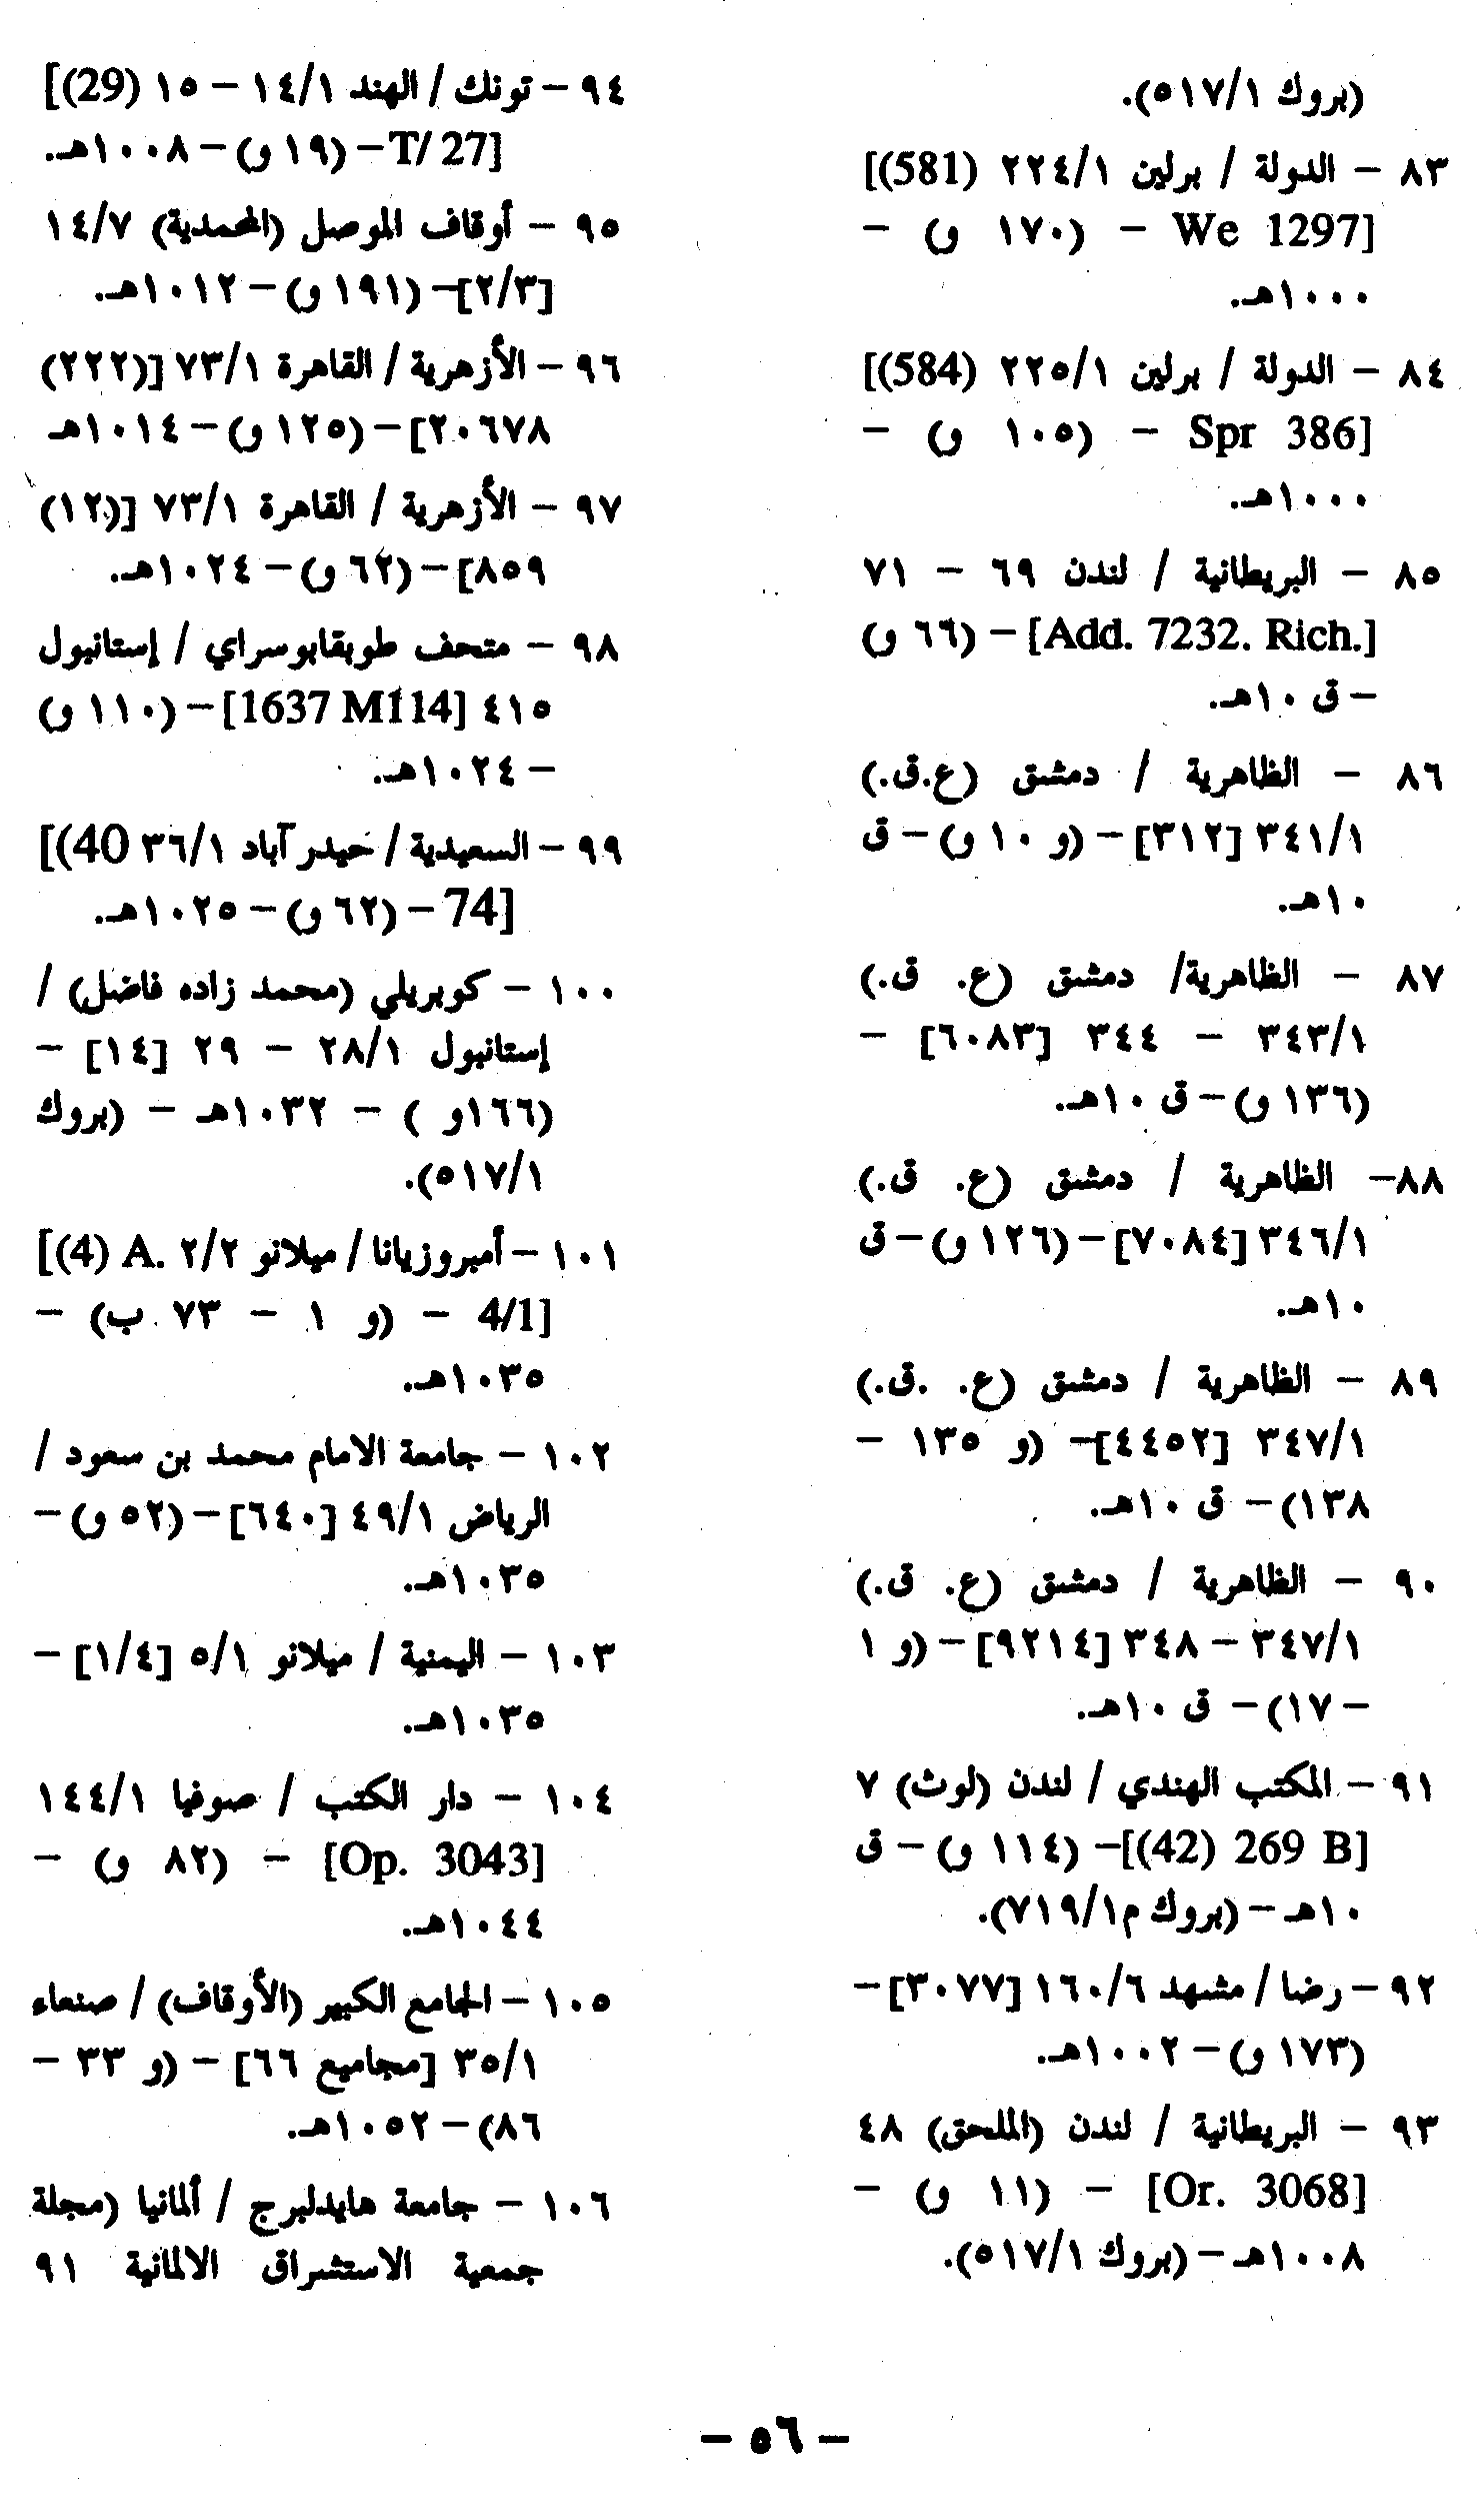 (بروك ٥١٧/١).
٨٣ – الدولة / برلين ٢٢٤/١ (581)]
[We 1297 – (١٧٠ و) –
١٠٠٠هـ.
٨٤ – الدولة / برلين ٢٢٥/١ (584)]
[Spr 386 – (١٠٥ و) –
١٠٠٠هـ.
٨٥ – البريطانية / لندن ٦٩ – ٧١
[Add. 7232. Rich.] – (٦٦ و)
– ق ١٠هـ.
٨٦ – الظاهرية / دمشق (ع.ق.)
٣٤١/١ [٣١٢] – (و ١٠ و) – ق
١٠هـ.
٨٧ – الظاهرية/ دمشق (ع. ق.)
٣٤٣/١ – ٣٤٤ [٦٠٨٣] –
(١٣٦ و) – ق ١٠هـ.
٨٨– الظاهرية / دمشق (ع. ق.)
٣٤٦/١ [٧٠٨٤] – (١٢٦ و) – ق
١٠هـ.
٨٩ – الظاهرية / دمشق (ع. .ق.)
٣٤٧/١ [٤٤٥٢]– (و ١٣٥ –
١٣٨) – ق ١٠هـ.
٩٠ – الظاهرية / دمشق (ع. ق.)
٣٤٧/١ – ٣٤٨ [٩٢١٤] – (و ١
– ١٧) – ق ١٠هـ.
٩١ – المكتب الهندي / لندن (لوث) ٧
[(42) 269 B]– (١١٤ و) – ق
١٠هـ – (بروك م٧١٩/١).
٩٢ – رضا / مشهد ١٦٠/٦ [٣٠٧٧] –
(١٧٣ و) – ١٠٠٢هـ.
٩٣ – البريطانية / لندن (الملحق) ٤٨
[Or. 3068] – (١١ و) –
١٠٠٨هـ – (بروك ٥١٧/١).
٩٤ – تونك / الهند ١٤/١ – ١٥ (29)]
[T/ 27– (١٩ و) – ١٠٠٨هـ.
٩٥ – أوقاف الموصل (المحمدية) ١٤/٧
[٢/٣]– (١٩١ و) – ١٠١٢هـ.
٩٦ – الأزهرية / القاهرة ٧٣/١ [(٢٢٢)
٢٠٦٧٨] – (١٢٥ و) – ١٠١٤هـ
٩٧ – الأزهرية / القاهرة ٧٣/١ [(١٢)
٨٥٩] – (٦٢ و) – ١٠٢٤هـ.
٩٨ – متحف طوبقابوسراي / إستانبول
٤١٥ [1637 M114] – (١١٠ و)
– ١٠٢٤هـ.
٩٩ – السعيدية / حيدر آباد ٣٦/١ 40)]
[74 – (٦٢ و) – ١٠٢٥هـ.
١٠٠ – كوبريلي (محمد زاده فاضل) /
إستانبول ٢٨/١ – ٢٩ [١٤] –
(١٦٦و ) – ١٠٣٢هـ – (بروك
٥١٧/١).
١٠١ – أمبروزيانا / ميلانو ٢/٢ A. (4)]
[4/1 – (و ١ – ٧٣ ب) –
١٠٣٥هـ.
١٠٢ – جامعة الامام محمد بن سعود /
الرياض ٤٩/١ [٦٤٠] – (٥٢ و) –
١٠٣٥هـ.
١٠٣ – اليمنية / ميلانو ٥/١ [١/٤] –
١٠٣٥هـ.
١٠٤ – دار الكتب / صوفيا ١٤٤/١
[Op. 3043] – (٨٢ و) –
١٠٤٤هـ.
١٠٥ – الجامع الكبير (الأوقاف) / صنعاء
٣٥/١ [مجاميع ٦٦] – (و ٣٣ –
٨٦) – ١٠٥٢هـ.
١٠٦ – جامعة هايدلبرج / ألمانيا (مجلة
جمعية الاستشراق الالمانية ٩١
– ٥٦ –